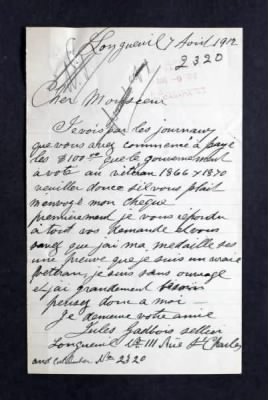 Longueuil 7 Aoit 1912
2320
Cher Monsieur
Je vois par les journaux
que vous avez commencé a payé
les $100.00 que le gouvernement
a voté au vétéran 1866 & 1870
veuiller donce sil vous plait
m'envoyé mon chèque
premierement je vous répondu
a tout vos demande et vous
savez que jai ma medaille ses
une preuve que je suis un vraie
vettran, je suis sans ouvrage
et jai grandement besoin
pensez donc a moi —
Je demeure votre amie
Jules Gadbois sellier
Longueuil No 111 Rue St Charles
No 2320